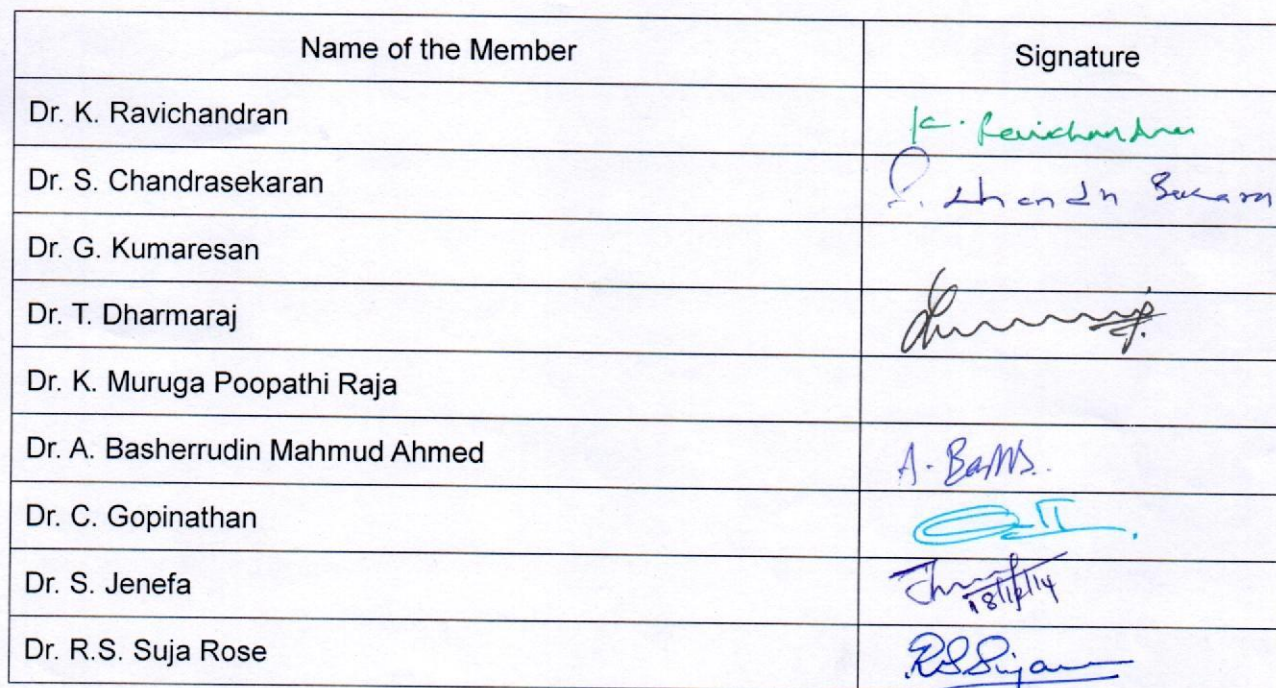 Name of the Member Signature
Dr. K. Ravichandran K. Ravichandran
Dr. S. Chandrasekaran S. Chandra Sekaran
Dr. G. Kumaresan
Dr. T. Dharmaraj
Dr. K. Muruga Poopathi Raja
Dr. A. Basherrudin Mahmud Ahmed A.
Dr. C. Gopinathan
Dr. S. Jenefa
Dr. R.S. Suja Rose